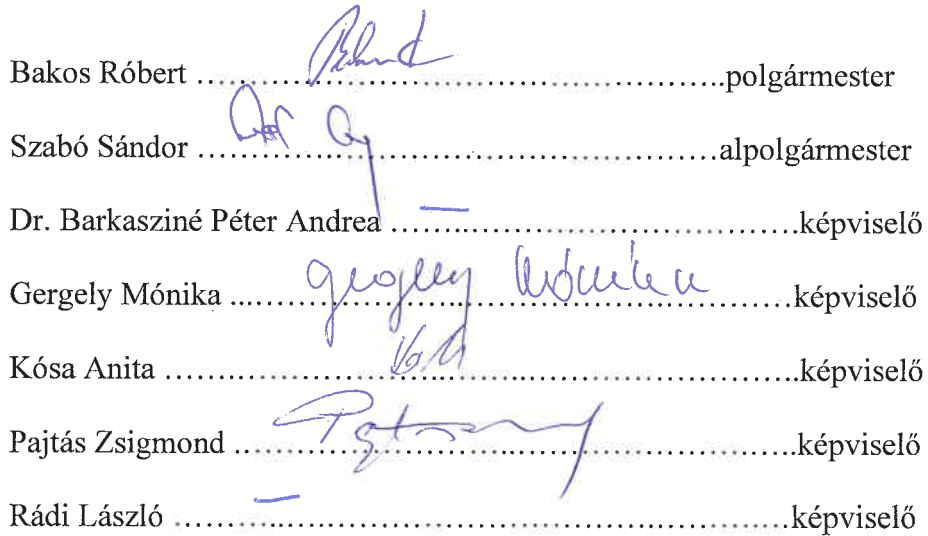 Bakos Róbert ....................................................polgármester
Szabó Sándor ....................................................alpolgármester
Dr. Barkasziné Péter Andrea ........................................képviselő
Gergely Mónika Gergely Mónika ........................................képviselő
Kósa Anita ............................................................képviselő
Pajtás Zsigmond ......................................................képviselő
Rádi László ............................................................képviselő